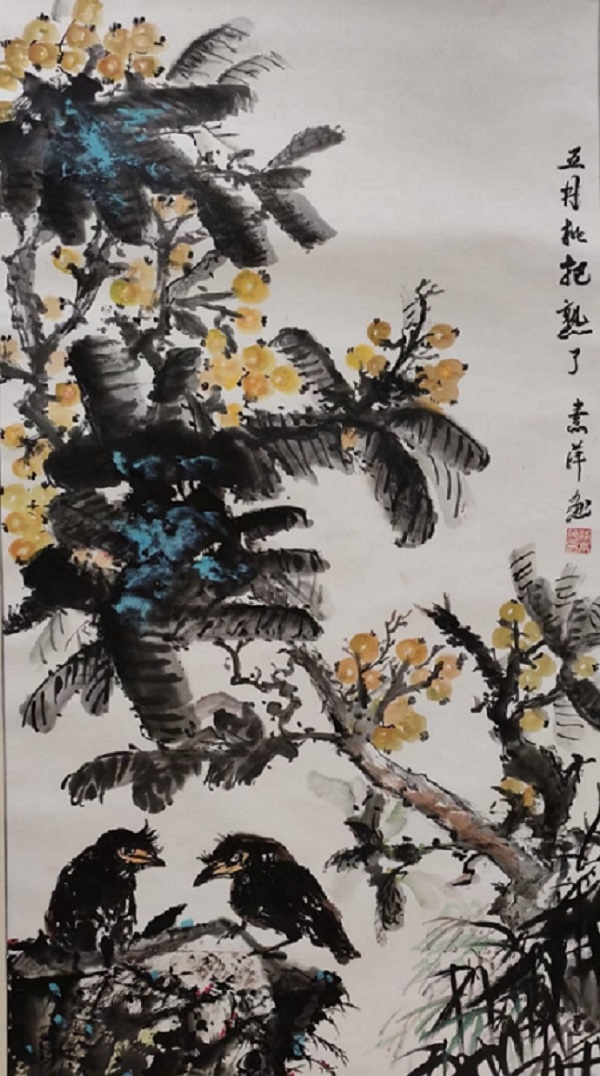 五月枇杷熟了 素萍画